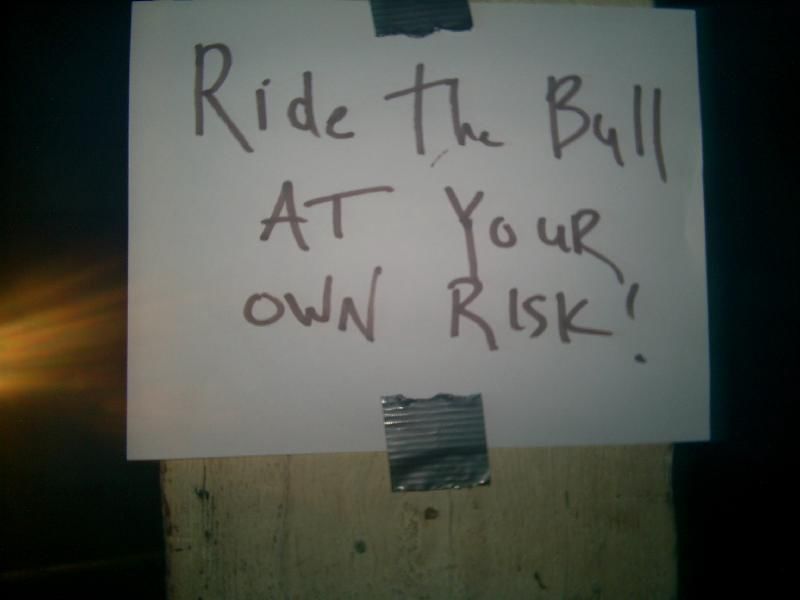 Ride the Bull
AT YOUR
OWN RISK!